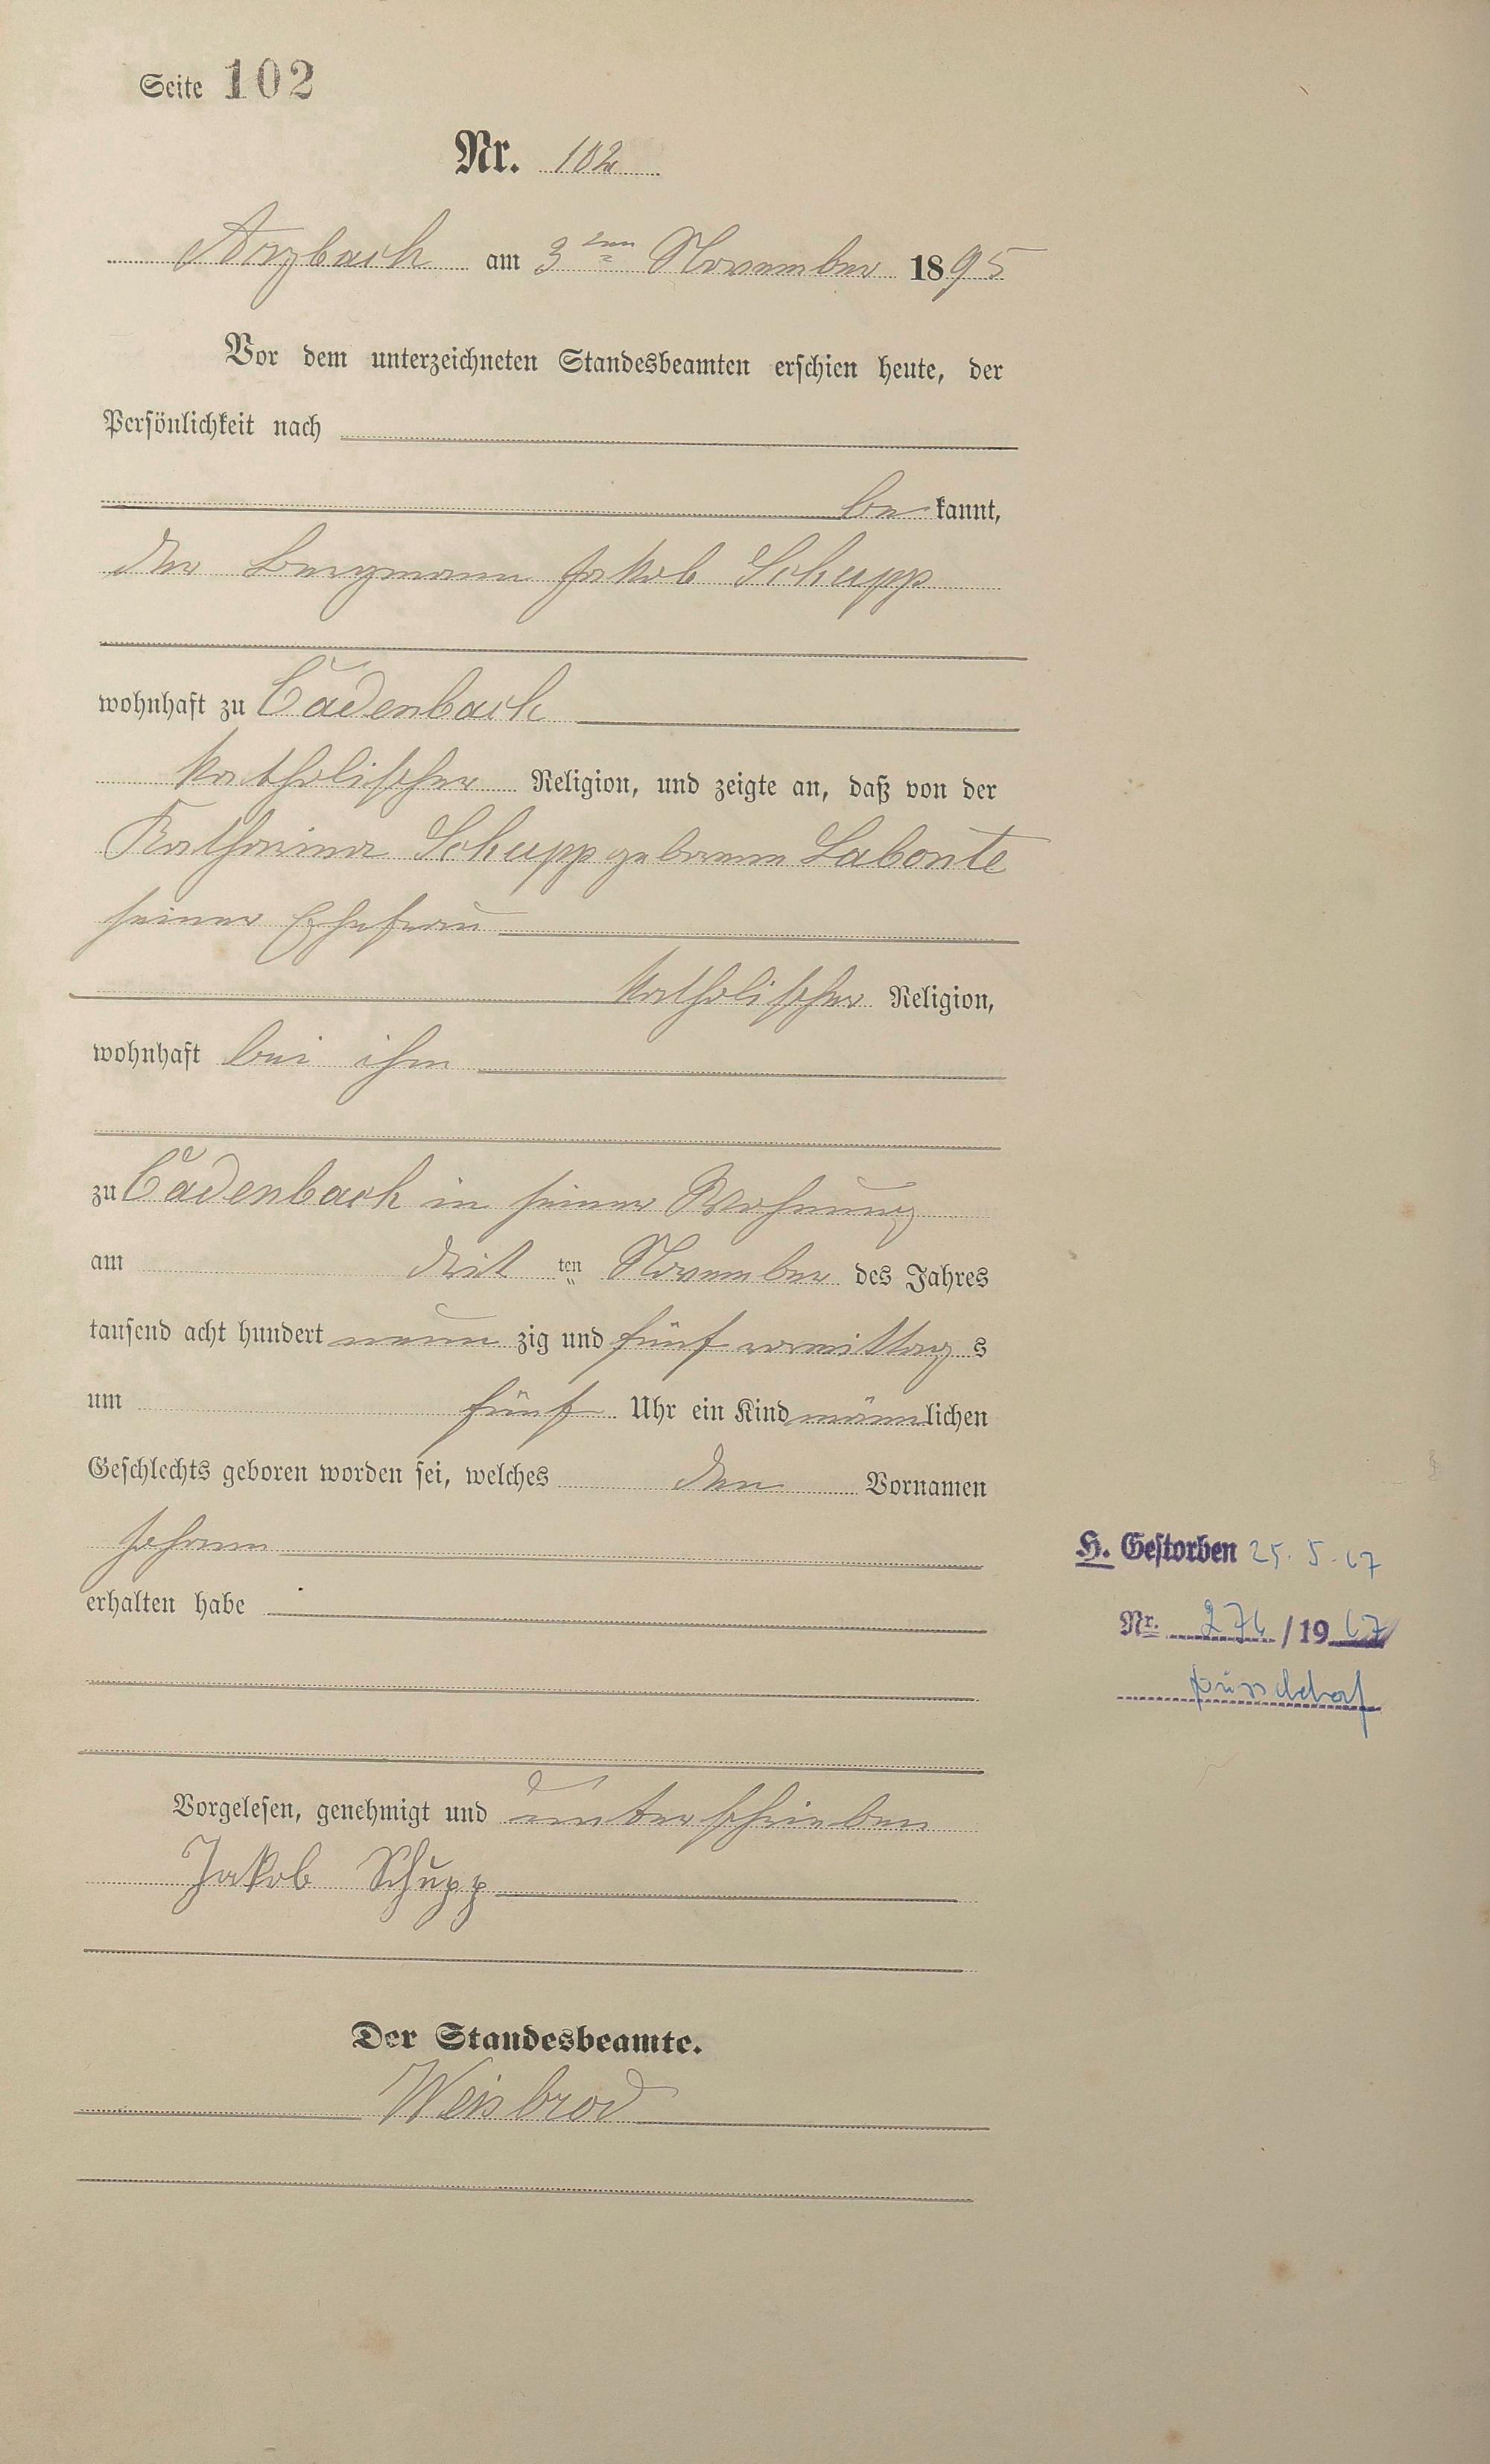 Seite 102
Nr. 102
Arzbach am 3ten November 1895
Vor dem unterzeichneten Standesbeamten erschien heute, der
Persönlichkeit nach
bekannt,
der Bergmann Jakob Schupp
wohnhaft zu Cadenbach
katholischer Religion, und zeigte an, daß von der
Katharina Schupp geborenen Labonte
seiner Ehefrau
katholischer Religion,
wohnhaft bei ihm
zu Cadenbach in seiner Wohnung
am dritten November des Jahres
tausend acht hundert neunzig und fünf vormittags
um fünf Uhr ein Kind männlichen
Geschlechts geboren worden sei, welches den Vornamen
Johann
erhalten habe
H. Gestorben 25. 5. 67
Nr. /1967
Vorgelesen, genehmigt und unterschrieben
Jakob Schupp
Der Standesbeamte.
Weisbrod